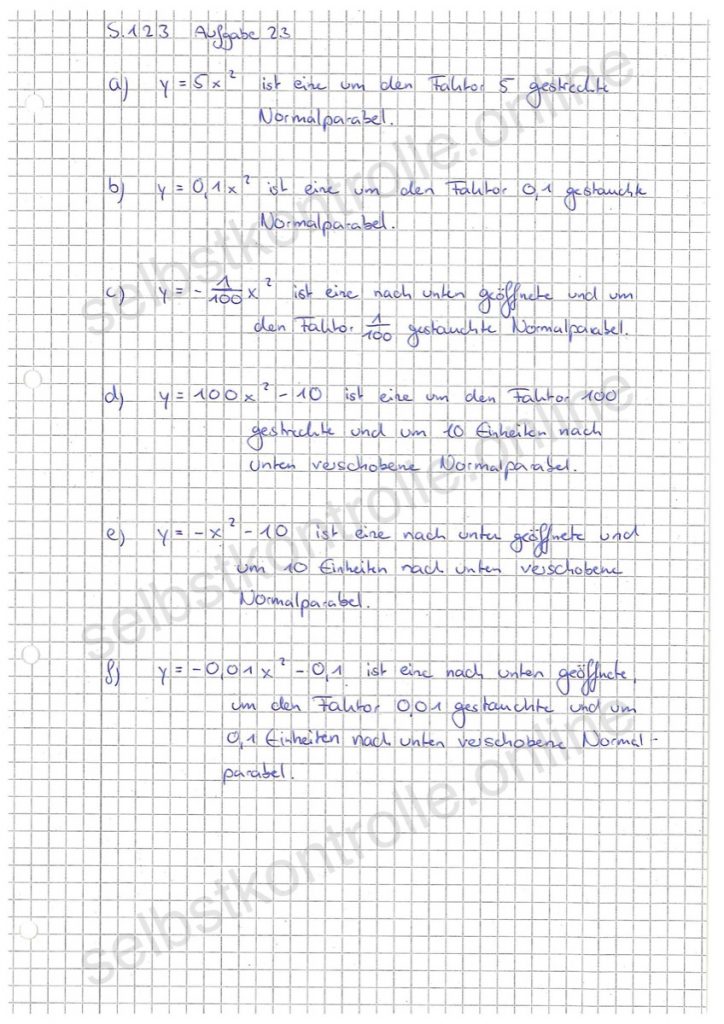 S.123 Aufgabe 23
a) y = 5x² ist eine um den Faktor 5 gestreckte
Normalparabel.
b) y = 0,1x² ist eine um den Faktor 0,1 gestauchte
Normalparabel.
c) y = - 1/100 x² ist eine nach unten geöffnete und um
den Faktor 1/100 gestauchte Normalparabel.
d) y = 100x² - 10 ist eine um den Faktor 100
gestreckte und um 10 Einheiten nach
unten verschobene Normalparabel.
e) y = -x² - 10 ist eine nach unten geöffnete und
um 10 Einheiten nach unten verschobene
Normalparabel.
f) y = -0,01x² - 0,1 ist eine nach unten geöffnete,
um den Faktor 0,01 gestauchte und um
0,1 Einheiten nach unten verschobene Normal-
parabel.
selbstkontrolle.online
selbstkontrolle.online
selbstkontrolle.online